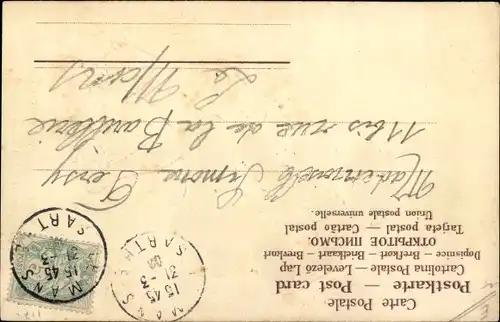 Carte Postale
Postkarte — Post card
Cartolina Postale — Levelező Lap
Dopisnice — Brefkort — Briefkaart — Brevkort
ОТКРЫТОЕ ПИСЬМО.
Tarjeta postal — Cartão postal
Union postale universelle.
Mademoiselle Simone
11 bis rue de la
Le Mans
LE MANS
15 45
31-3
SARTHE
MANS
15 45
31-3
SARTHE